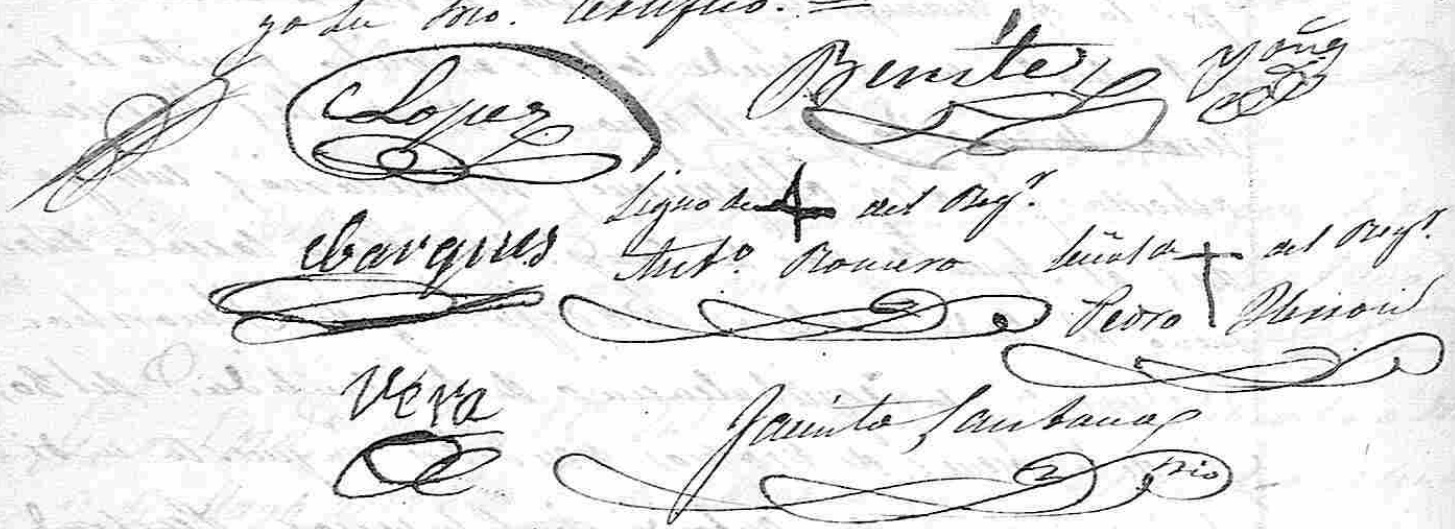 yo el Srio. Certifico. =
Lopez Benitez Yañez
Barques
Signo de + del Regr.
Anto. Romero
Señal de + del Regr.
Pedro
Vera
Jacinto Santana
Srio